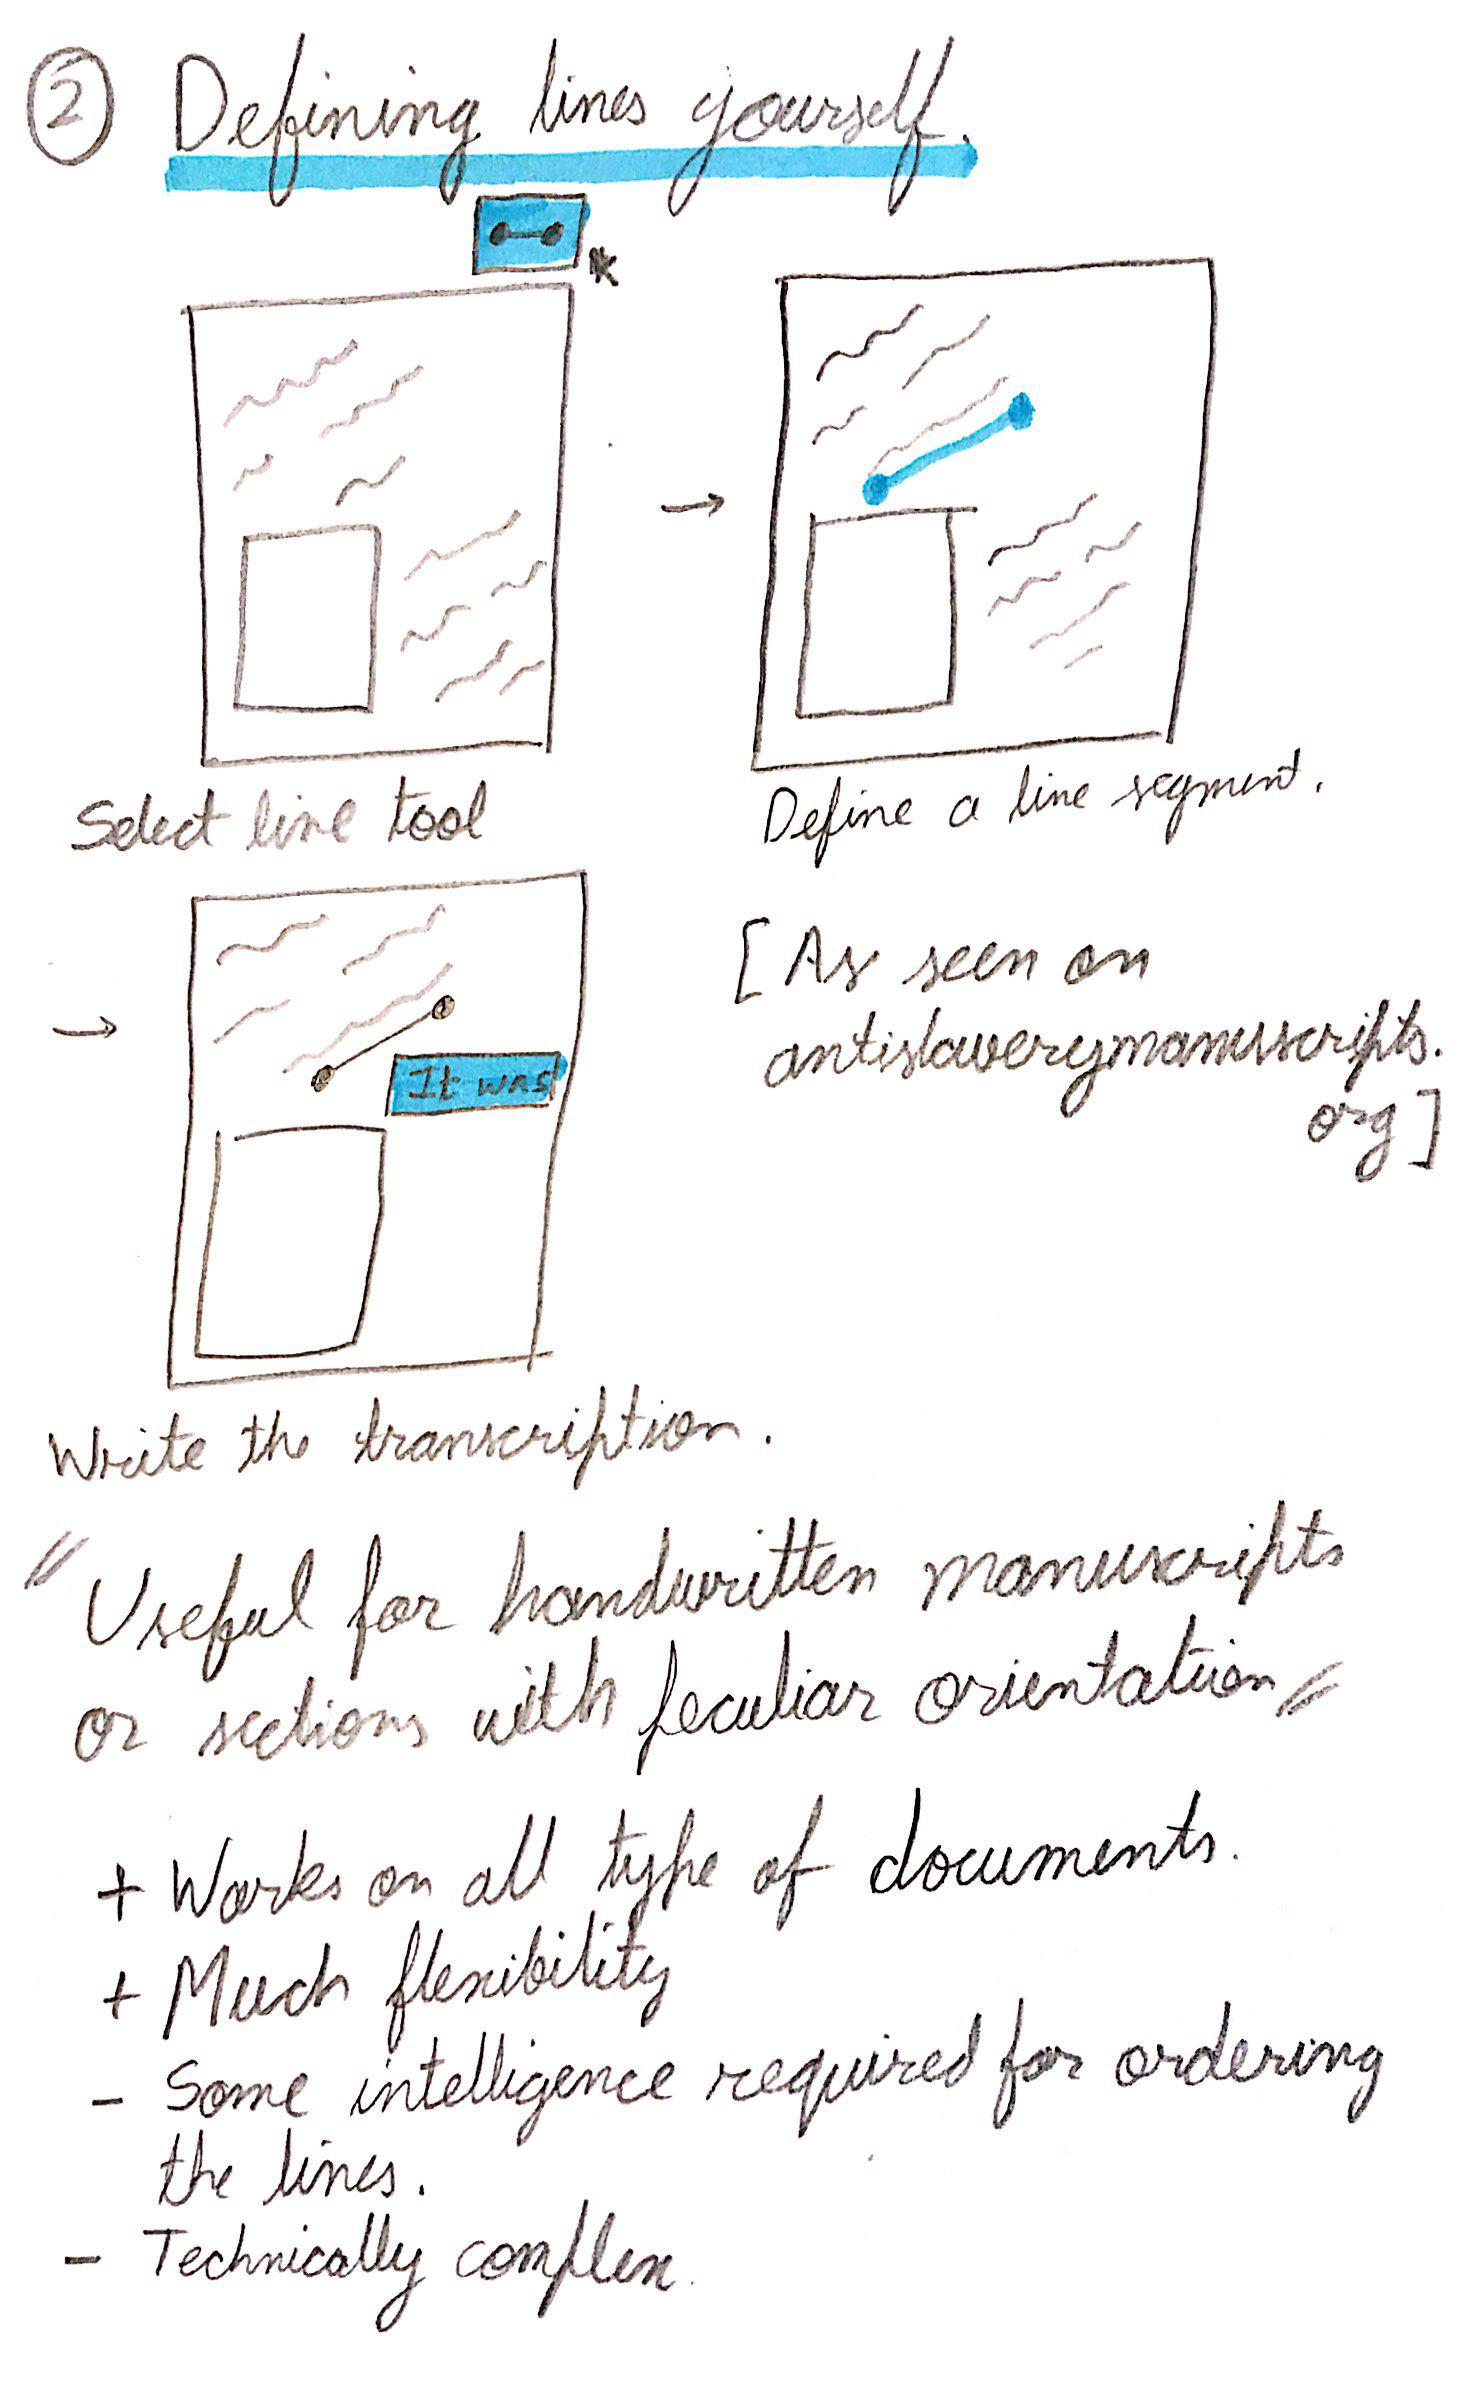 ② Defining lines yourself.
Select line tool
→
Define a line segment.
→
It was
[As seen on
antislaverymanuscripts.
org]
Write the transcription.
"Useful for handwritten manuscripts
or sections with peculiar orientation"
+ Works on all type of documents.
+ Much flexibility
- Some intelligence required for ordering
the lines.
- Technically complex.